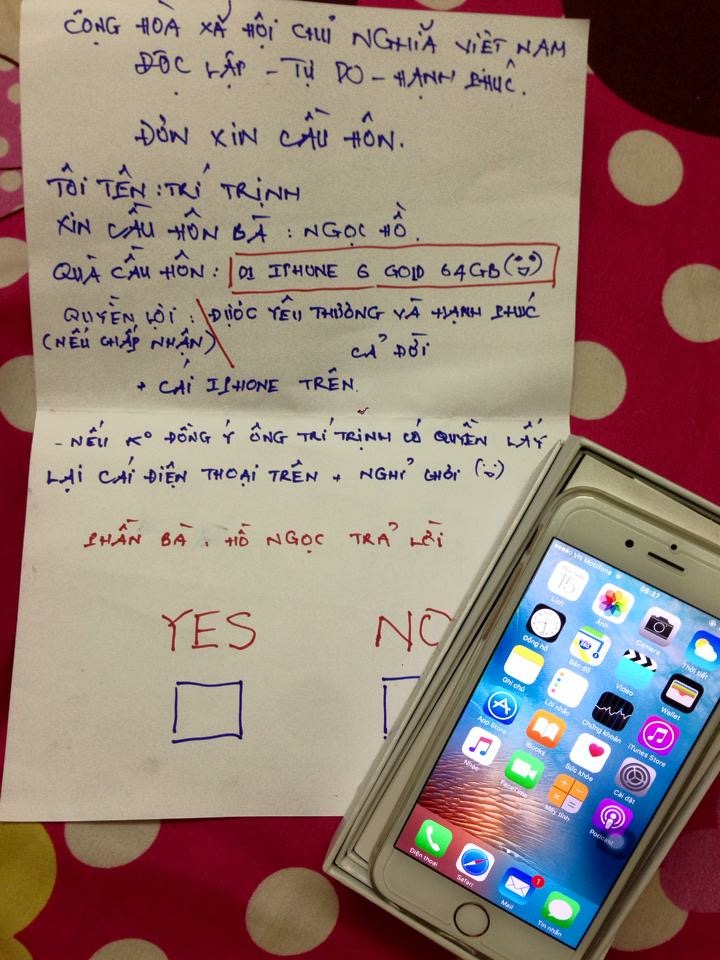 CỘNG HÒA XÃ HỘI CHỦ NGHĨA VIỆT NAM
ĐỘC LẬP - TỰ DO - HẠNH PHÚC.
ĐƠN XIN CẦU HÔN.
TÔI TÊN : TRÍ TRỊNH
XIN CẦU HÔN BÀ : NGỌC HỒ.
QUÀ CẦU HÔN : 01 IPHONE 6 GOLD 64GB
QUYỀN LỢI : ĐƯỢC YÊU THƯƠNG VÀ HẠNH PHÚC
(NẾU CHẤP NHẬN) CẢ ĐỜI
+ CÁI IPHONE TRÊN.
- NẾU KO ĐỒNG Ý ÔNG TRÍ TRỊNH CÓ QUYỀN LẤY
LẠI CÁI ĐIỆN THOẠI TRÊN + NGHỈ CHƠI
PHẦN BÀ . HỒ NGỌC TRẢ LỜI
YES NO
VN Mobifone 08:27
15
Lịch Ảnh Camera Thời tiết
Đồng hồ Bản đồ Video Wallet
Ghi chú Lời nhắc Chứng khoán iTunes Store
App Store iBooks Sức khỏe Cài đặt
Nhạc FaceTime Máy tính Podcast
1
Điện thoại Safari Mail Tin nhắn